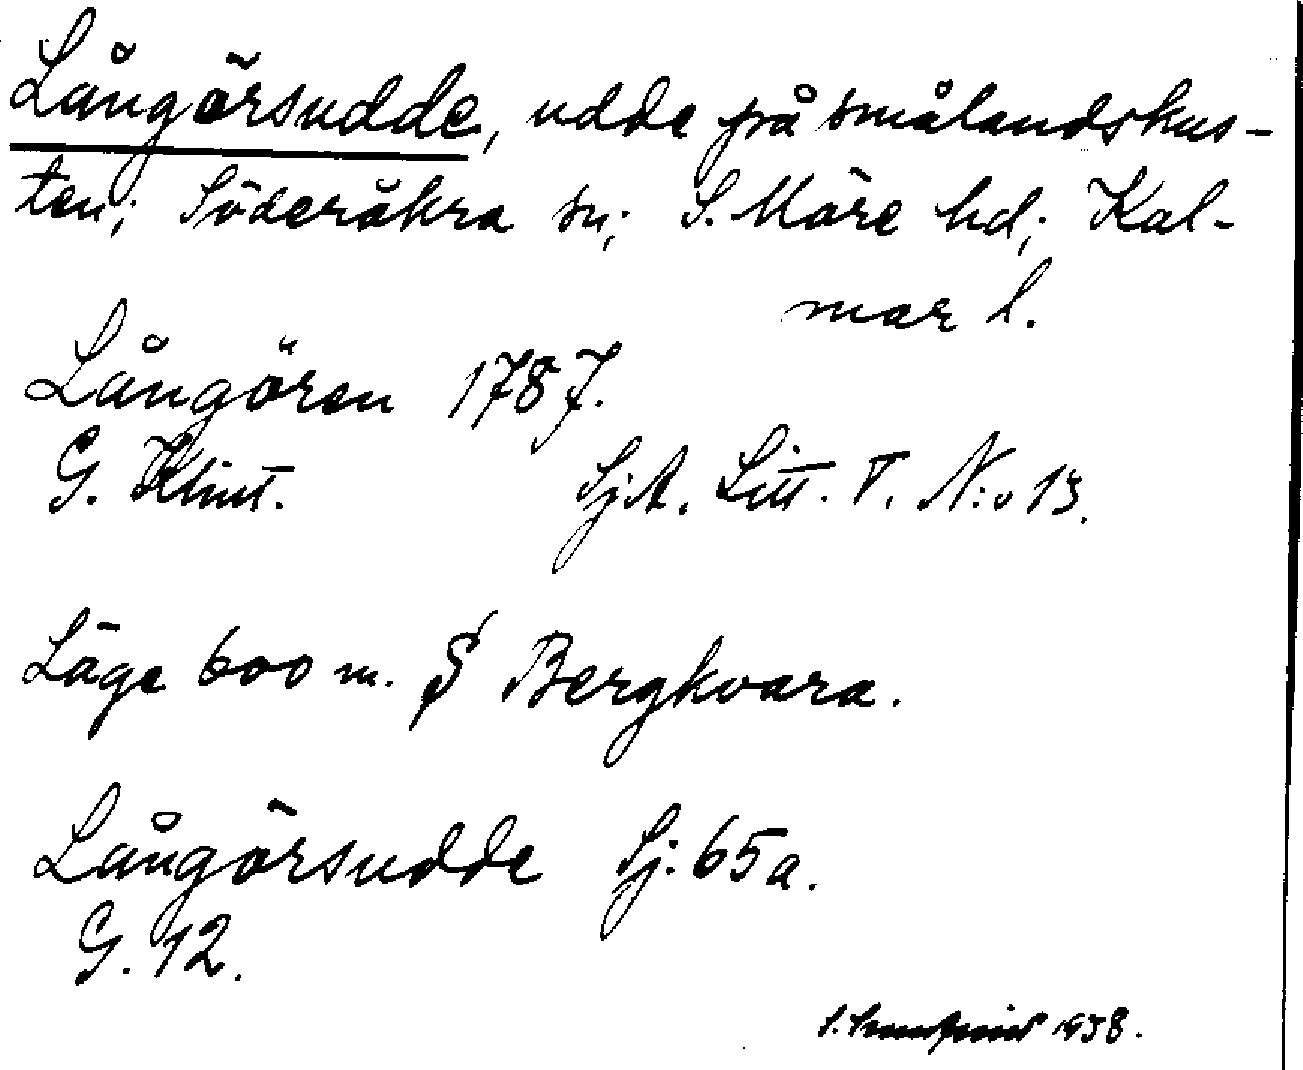 Långörsudde, udde på smålandskus-
ten; Söderåkra sn; S. Möre hd; Kal-
mar l.
Långören 1787.
G. Klint. Sj.A. Litt. T. N:o 13.
Läge 600 m. S Bergkvara.
Långörsudde Sj. 65a.
G. 12.
S. 1938.